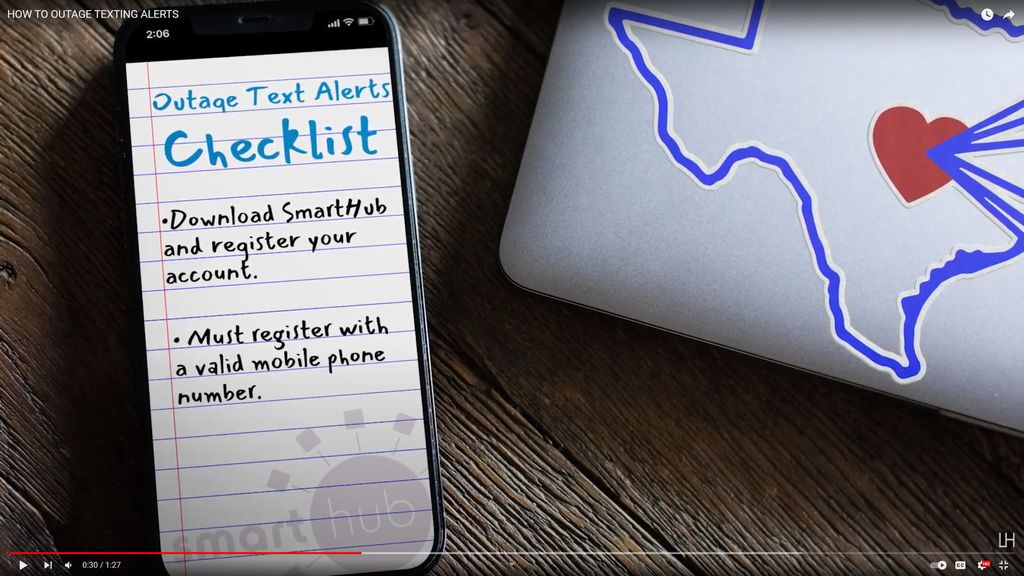 HOW TO OUTAGE TEXTING ALERTS
2:06
Outage Text Alerts
Checklist
•Download SmartHub
and register your
account.
• Must register with
a valid mobile phone
number.
smart hub
LH
0:30 / 1:27
CC
HD